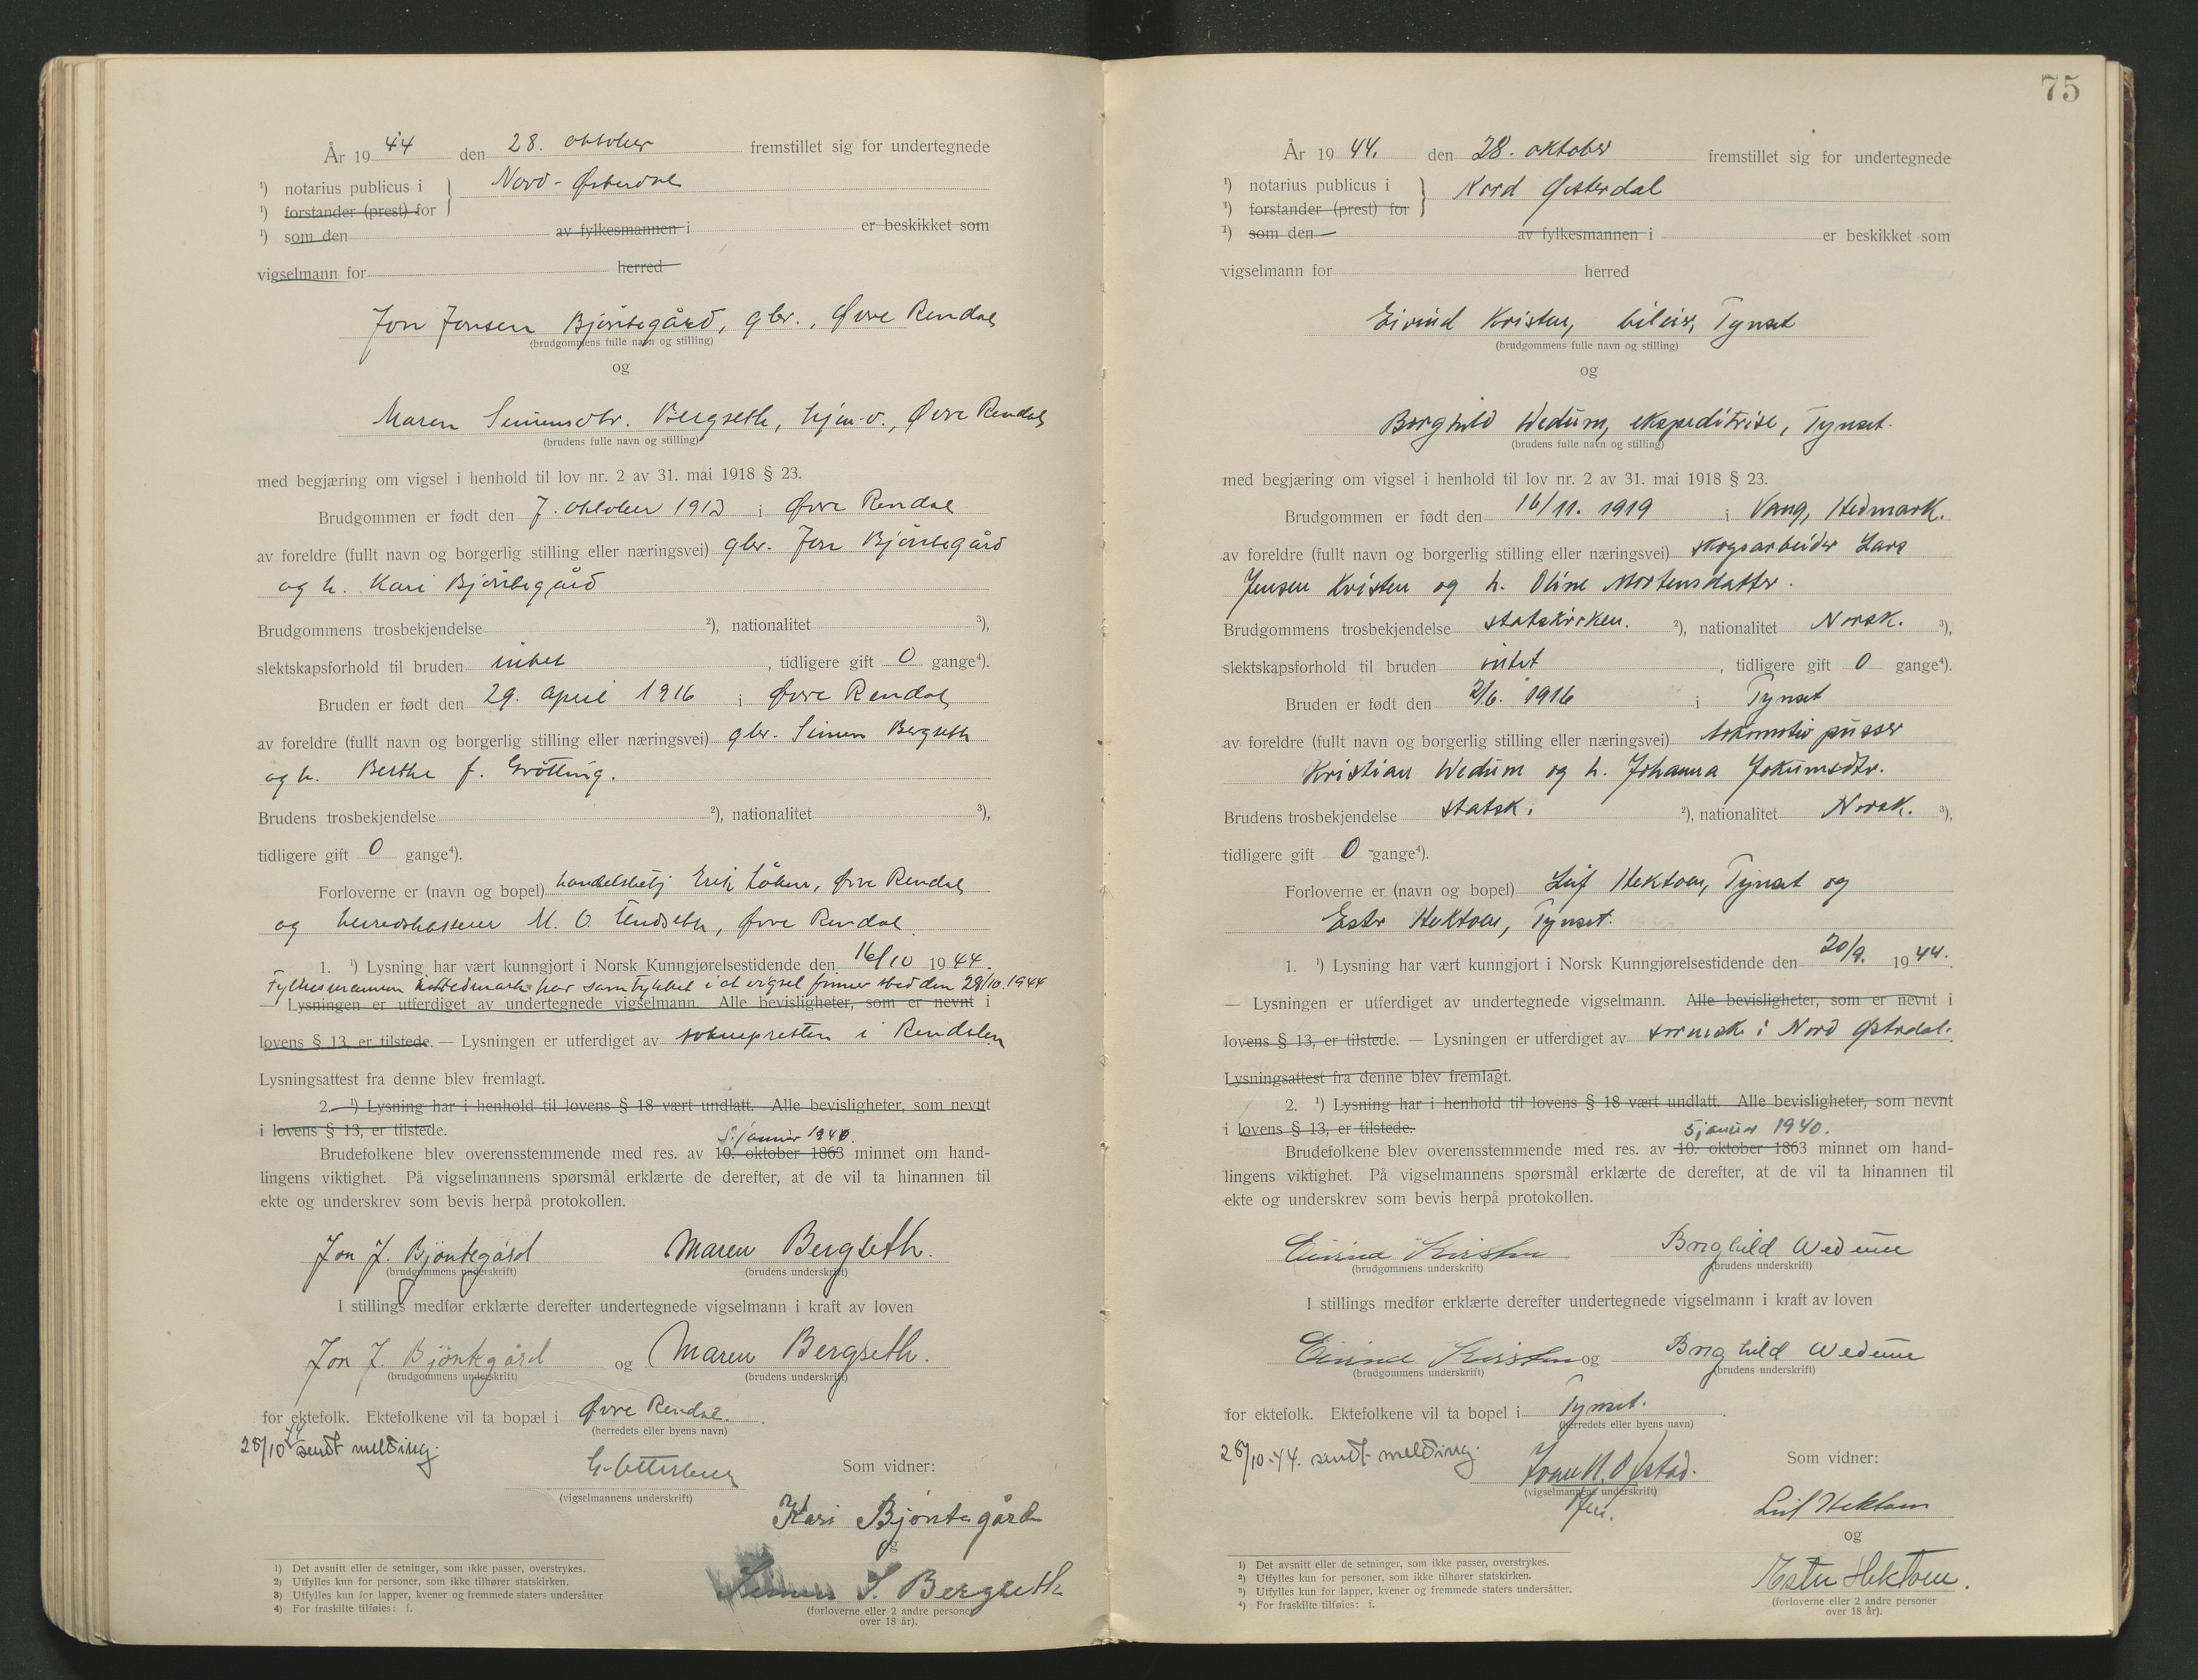 År 1944 den 28. oktober fremstillet sig for undertegnede
¹) notarius publicus i } Nord-Østerdal
¹) forstander (prest) for
¹) som den av fylkesmannen i er beskikket som
vigselmann for herred
Jon Jonsen Bjøntegård, gbr., Øvre Rendal
(brudgommens fulle navn og stilling)
og
Maren Simensdtr. Bergseth, hjem-v., Øvre Rendal
(brudens fulle navn og stilling)
med begjæring om vigsel i henhold til lov nr. 2 av 31. mai 1918 § 23.
Brudgommen er født den 7. oktober 1913 i Øvre Rendal
av foreldre (fullt navn og borgerlig stilling eller næringsvei) gbr. Jon Bjøntegård
og h. Kari Bjøntegård
Brudgommens trosbekjendelse ²), nationalitet ³),
slektskapsforhold til bruden intet, tidligere gift 0 gange⁴).
Bruden er født den 29. april 1916 i Øvre Rendal
av foreldre (fullt navn og borgerlig stilling eller næringsvei) gbr. Simen Bergseth
og h. Berthe f. Grøtting.
Brudens trosbekjendelse ²), nationalitet ³),
tidligere gift 0 gange⁴).
Forloverne er (navn og bopel) handelsbetj Erik Løken, Øvre Rendal
og herredskasserer M. O. Undseth, Øvre Rendal
1. ¹) Lysning har vært kunngjort i Norsk Kunngjørelsestidende den 16/10 1944.
Fylkesmannen i Hedmark har samtykket i at vigsel finner sted den 28/10.1944
— Lysningen er utferdiget av undertegnede vigselmann. Alle bevisligheter, som er nevnt i
lovens § 13, er tilstede. — Lysningen er utferdiget av soknepresten i Rendalen
Lysningsattest fra denne blev fremlagt.
2. ¹) Lysning har i henhold til lovens § 18 vært undlatt. Alle bevisligheter, som nevnt
i lovens § 13, er tilstede.
5. januar 1940.
Brudefolkene blev overensstemmende med res. av 10. oktober 1863 minnet om hand-
lingens viktighet. På vigselmannens spørsmål erklærte de derefter, at de vil ta hinannen til
ekte og underskrev som bevis herpå protokollen.
Jon J. Bjøntegård Maren Bergseth.
(brudgommens underskrift) (brudens underskrift)
I stillings medfør erklærte derefter undertegnede vigselmann i kraft av loven
Jon J. Bjøntegård og Maren Bergseth.
(brudgommens underskrift) (brudens underskrift)
for ektefolk. Ektefolkene vil ta bopæl i Øvre Rendal.
(herredets eller byens navn)
28/10 44 sendt melding.
Som vidner:
(vigselmannens underskrift)
Kari Bjøntegård
og
Simen S. Bergseth
(forloverne eller 2 andre personer
over 18 år).
1) Det avsnitt eller de setninger, som ikke passer, overstrykes.
2) Utfylles kun for personer, som ikke tilhører statskirken.
3) Utfylles kun for lapper, kvener og fremmede staters undersåtter
4) For fraskilte tilføies: f.
75
År 1944. den 28. oktober fremstillet sig for undertegnede
¹) notarius publicus i } Nord Østerdal
¹) forstander (prest) for
¹) som den av fylkesmannen i er beskikket som
vigselmann for herred
Eivind Kristen, bileier, Tynset
(brudgommens fulle navn og stilling)
og
Borghild Wedum, ekspeditrise, Tynset.
(brudens fulle navn og stilling)
med begjæring om vigsel i henhold til lov nr. 2 av 31. mai 1918 § 23.
Brudgommen er født den 16/11. 1919 i Vang, Hedmark.
av foreldre (fullt navn og borgerlig stilling eller næringsvei) skogsarbeider Lars
Jensen Kristen og h. Oline Mortensdatter.
Brudgommens trosbekjendelse statskirken. ²), nationalitet Norsk. ³),
slektskapsforhold til bruden intet, tidligere gift 0 gange⁴).
Bruden er født den 2/6. 1916 i Tynset
av foreldre (fullt navn og borgerlig stilling eller næringsvei) lokomotivpusser
Kristian Wedum og h. Johanna Jokumsdtr.
Brudens trosbekjendelse statsk. ²), nationalitet Norsk. ³),
tidligere gift 0 gange⁴).
Forloverne er (navn og bopel) Leif Hektoen, Tynset og
Ester Hektoen, Tynset.
1. ¹) Lysning har vært kunngjort i Norsk Kunngjørelsestidende den 20/9. 1944.
— Lysningen er utferdiget av undertegnede vigselmann. Alle bevisligheter, som er nevnt i
lovens § 13, er tilstede. — Lysningen er utferdiget av sorensk. i Nord Østerdal.
Lysningsattest fra denne blev fremlagt.
2. ¹) Lysning har i henhold til lovens § 18 vært undlatt. Alle bevisligheter, som nevnt
i lovens § 13, er tilstede.
5 januar 1940.
Brudefolkene blev overensstemmende med res. av 10. oktober 1863 minnet om hand-
lingens viktighet. På vigselmannens spørsmål erklærte de derefter, at de vil ta hinannen til
ekte og underskrev som bevis herpå protokollen.
Eivind Kristen Borghild Wedum
(brudgommens underskrift) (brudens underskrift)
I stillings medfør erklærte derefter undertegnede vigselmann i kraft av loven
Eivind Kristen og Borghild Wedum
(brudgommens underskrift) (brudens underskrift)
for ektefolk. Ektefolkene vil ta bopel i Tynset.
(herredets eller byens navn)
28/10-44. sendt melding.
Som vidner:
(vigselmannens underskrift)
Leif Hektoen
og
Ester Hektoen.
(forloverne eller 2 andre personer
over 18 år).
1) Det avsnitt eller de setninger, som ikke passer, overstrykes.
2) Utfylles kun for personer, som ikke tilhører statskirken.
3) Utfylles kun for lapper, kvener og fremmede staters undersåtter.
4) For fraskilte tilføies: f.